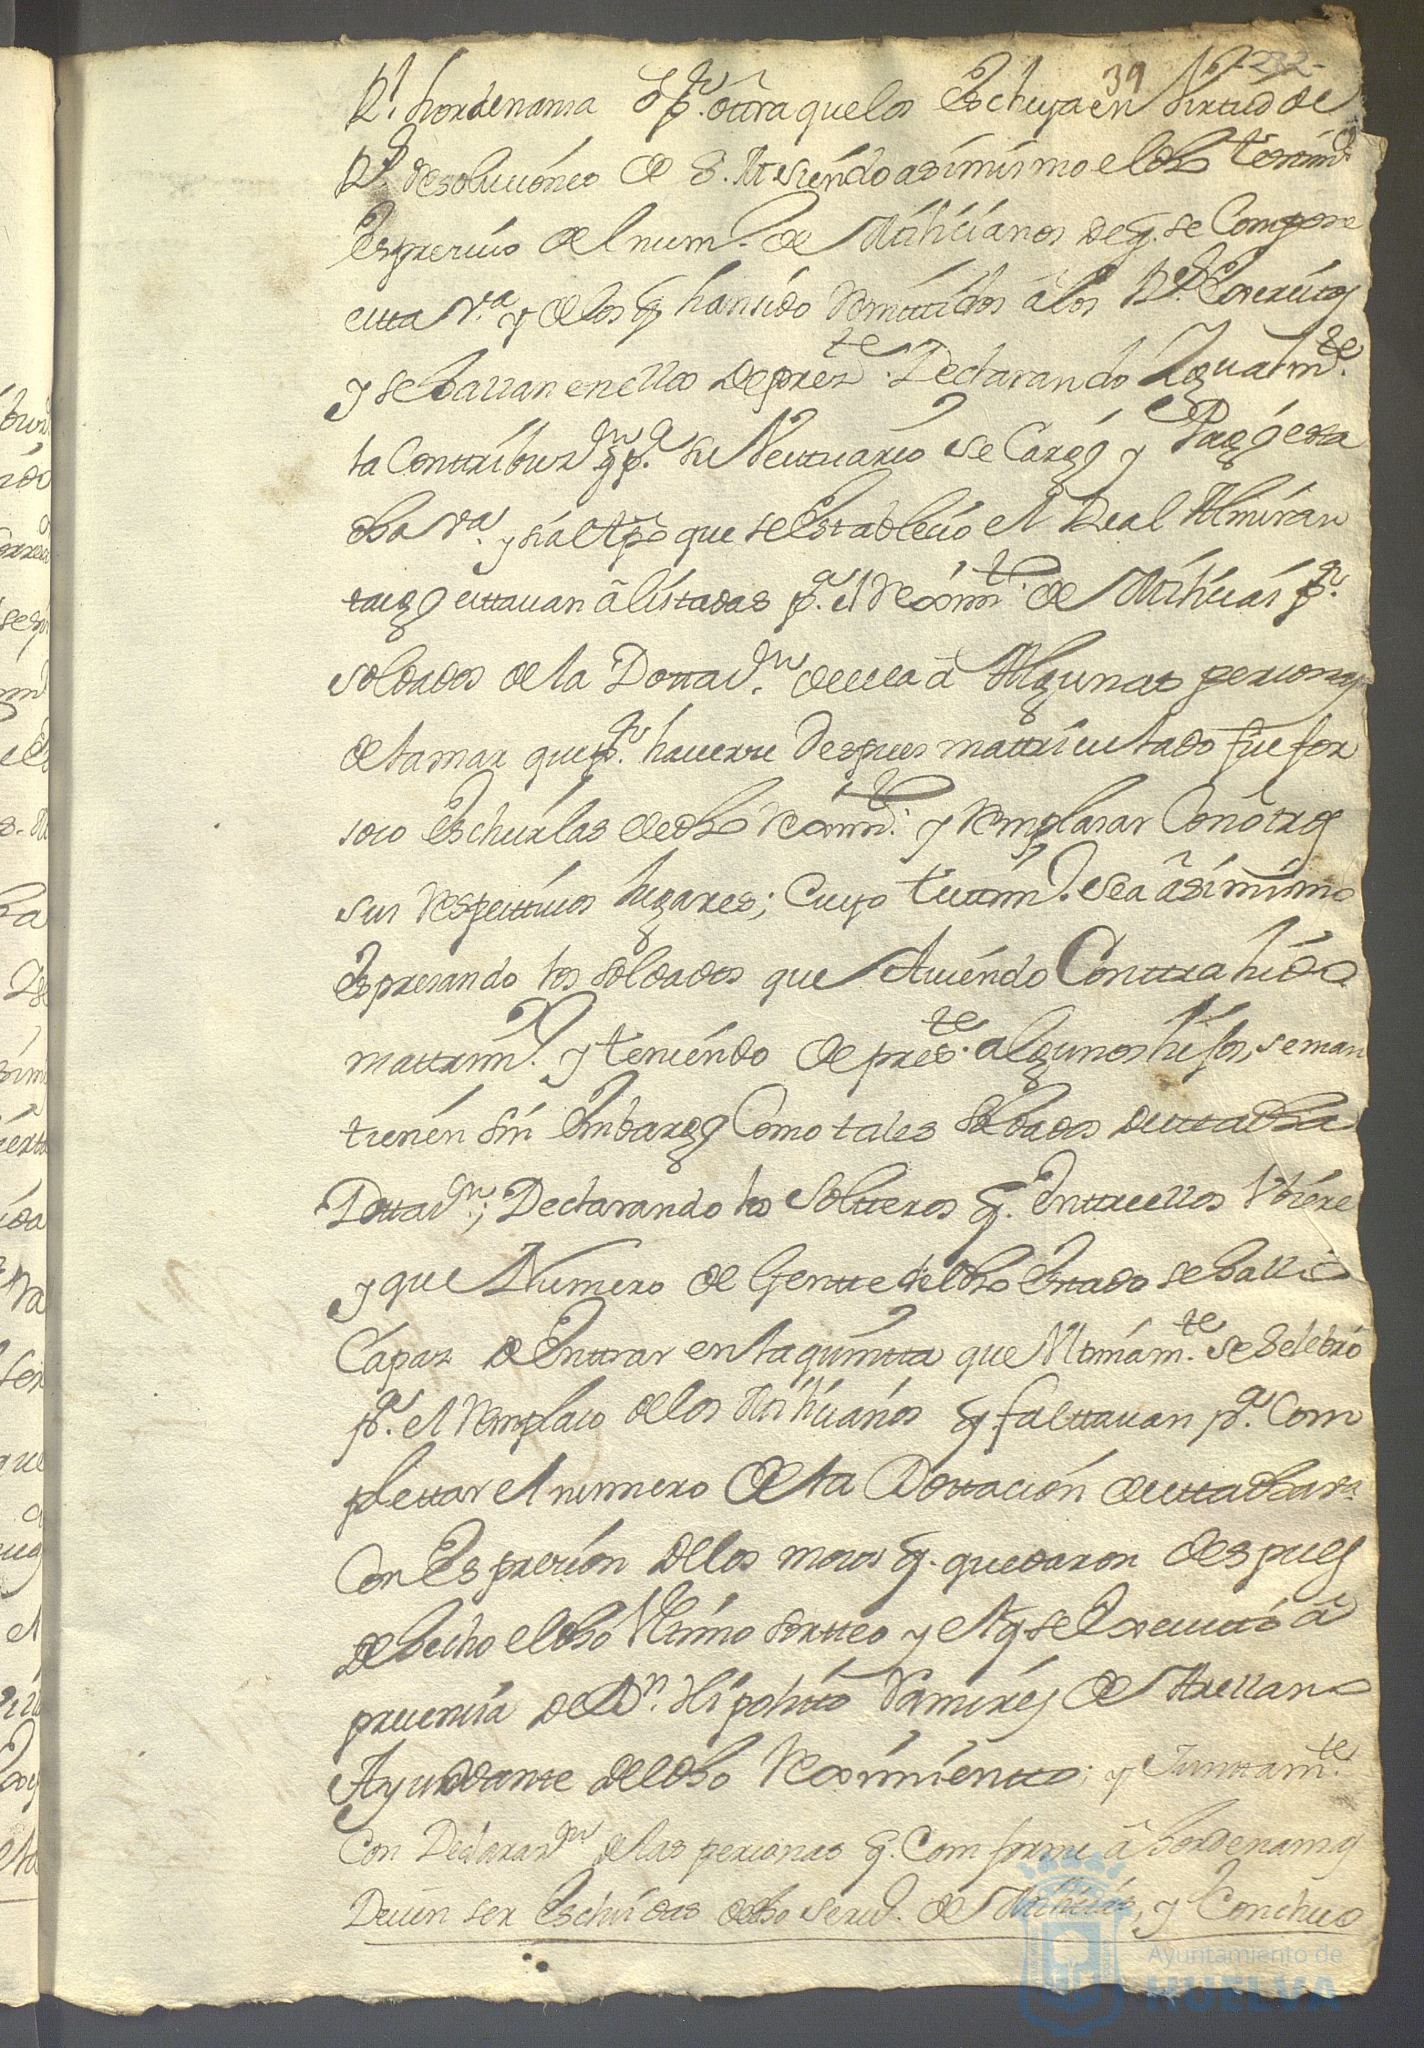 39 -232-
Rl. hordenansa y pr. otra que los Escluya en Virtud de
Rs. Resoluciones de S. M. siendo asimismo el dho testim.o
Espresivo del num.o de Milicianos de q. se Compone
esta V.a y de los q han sido Remitidos â los Rs. Exercitos
y se hallan en ellos de pres.te Declarando Igualm.te
la Contribuz.n q p.a su Vestuario se Cargó y Pagó esta
dha V.a y si al tpo que se Establecio el Real Almiran
tazgo estavan âlistadas p.a el Reximt.o de Milicias pr.
soldados de la Dottaz.n de ella â Algunas personas
de la mar que pr. haverse despues mattriculado fue for
soso Escluirlas de dho Reximt.o y Remplasar Con otros
sus respettivos lugares; Cuyo testim.o sea âsimismo
espresando los soldados que Aviendo Conttrahido
mattrim.o y teniendo de pres.te algunos hijos, se man
tienen sin Embargo Como tales soldados de esta dha
Dottaz.n; Declarando los Soltteros q. Entre ellos Ubiere
y que Numero de Gente del dho Estado se halló
Capaz de Entrar en la quintta que Ultimam.te se Selebró
p.a el Remplaso de los Milicianos q. falttavan p.a Com
plettar el numero de la Dottacion de esta dha v.a
Con Espresion de los mosos q. quedaron despues
de hecho el dho Ultimo sortteo y el q se Executtó â
presencia de Dn. Hipolitto Ramires de Arellano
Ayudante del dho Reximientto; y Junttam.te
Con Declaraz.n de las personas q. Comforme â hordenansas
Deven ser Escluidas de dho serv.o de Milicias, y Concluso
Ayuntamiento de
HUELVA